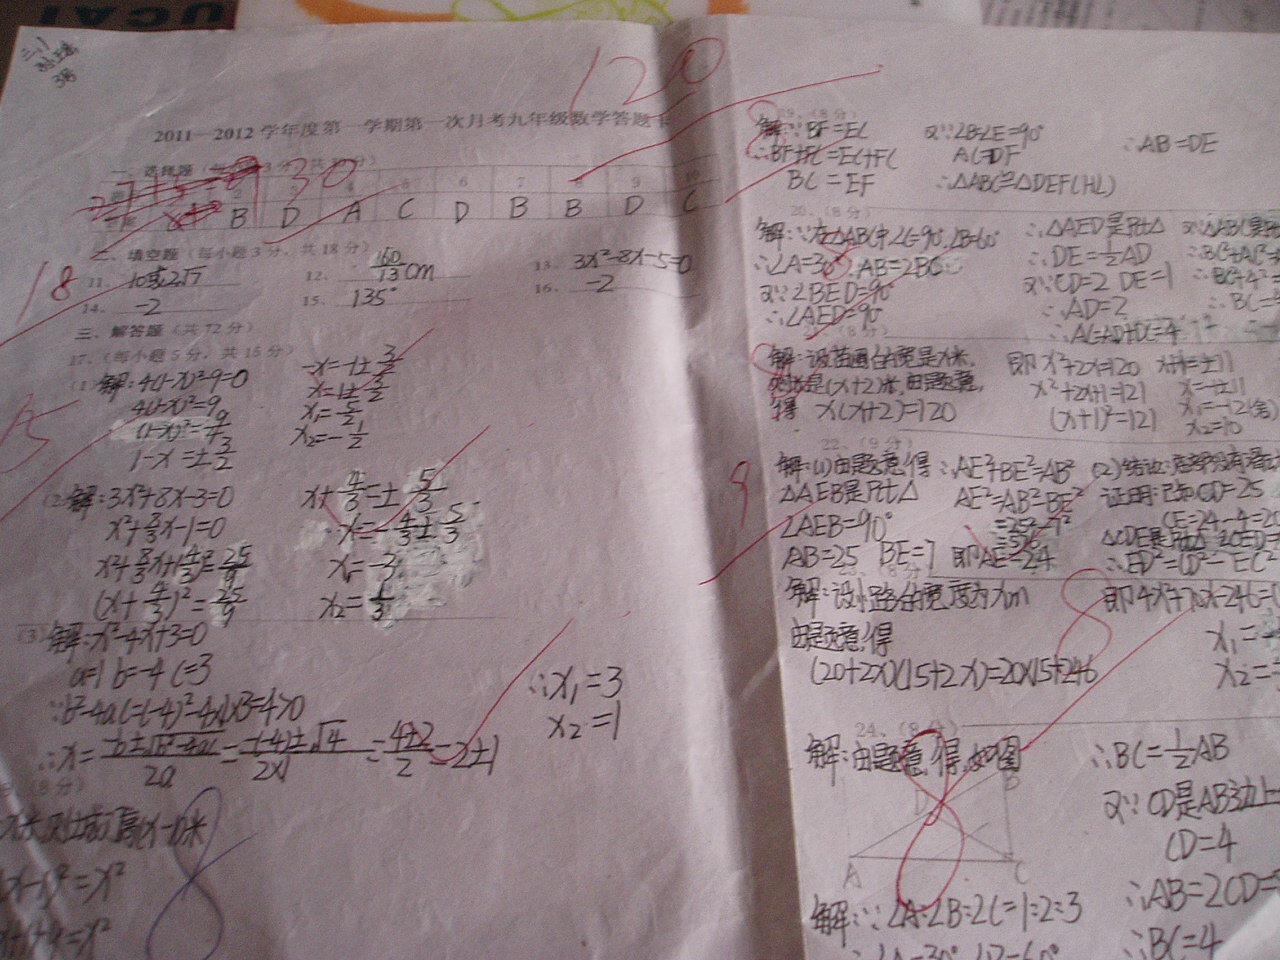 UCAI
120
2011—2012 学年度第一学期第一次月考九年级数学答题卡
一、选择题
30
6 7 8 9 10
B D A C D B B D C
二、填空题（每小题3分，共18分）
18
11. 10或2√7 12. 60/13 cm 13. 3x²-8x-5=0
14. -2 15. 135° 16. -2
三、解答题（共72分）
17、（每小题5分，共15分）
15
(1)解:4(1-x)²-9=0
4(1-x)²=9
(1-x)²=9/4
1-x=±3/2
-x=-1±3/2
x=1±3/2
x₁=5/2
x₂=-1/2
(2)解:3x²+8x-3=0
x²+8/3x-1=0
x²+8/3x+(4/3)²=25/9
(x+4/3)²=25/9
x+4/3=±5/3
x=-4/3±5/3
x₁=-3
x₂=1/3
(3)解:x²-4x+3=0
a=1 b=-4 c=3
∵b²-4ac=(-4)²-4×1×3=4>0
∴x=(-b±√b²-4ac)/2a=(-(-4)±√4)/2×1=(4±2)/2=2±1
∴x₁=3
x₂=1
（8分）
8
19、（8分）
8
解:∵BF=EC
∴BF+FC=EC+FC
BC=EF
又∵∠B=∠E=90°
AC=DF
∴△ABC≌△DEF(HL)
∴AB=DE
20、（8分）
8
解:∵在△ABC中,∠C=90°,∠B=60°
∴∠A=30° AB=2BC
又∵∠BED=90°
∴∠AED=90°
∴△AED是Rt△
∴DE=½AD
又∵CD=2 DE=1
∴AD=2
∴AC=AD+DC=4
又∵△ABC是Rt
21、（8分）
8
解:设苗圃的宽是x米,
则长是(x+2)米,由题意,
得 x(x+2)=120
即x²+2x=120
x²+2x+1=121
(x+1)²=121
x+1=±11
x=-1±11
x₁=-12(舍)
x₂=10
22、（9分）
9
解:(1)由题意,得
△AEB是Rt△
∠AEB=90°
AB=25 BE=7
∴AE²+BE²=AB²
AE²=AB²-BE²
=25²-7²
=576
即AE=24
证明:已知CD=25
CE=24-4=20
△CDE是Rt△ ∠CED=
∴ED²=CD²-EC²
解:设小路的宽度为xm
由题意,得
(20+2x)(15+2x)=20×15+246
即4x²+70x-246=0
x₁=
x₂=
8
24、（8分）
8
解:由题意,得,如图
A B C D
解:∵∠A:∠B:∠C=1:2:3
∴∠A=30° ∠B=60°
∴BC=½AB
又∵CD是AB边上
CD=4
∴AB=2CD=
∴BC=4